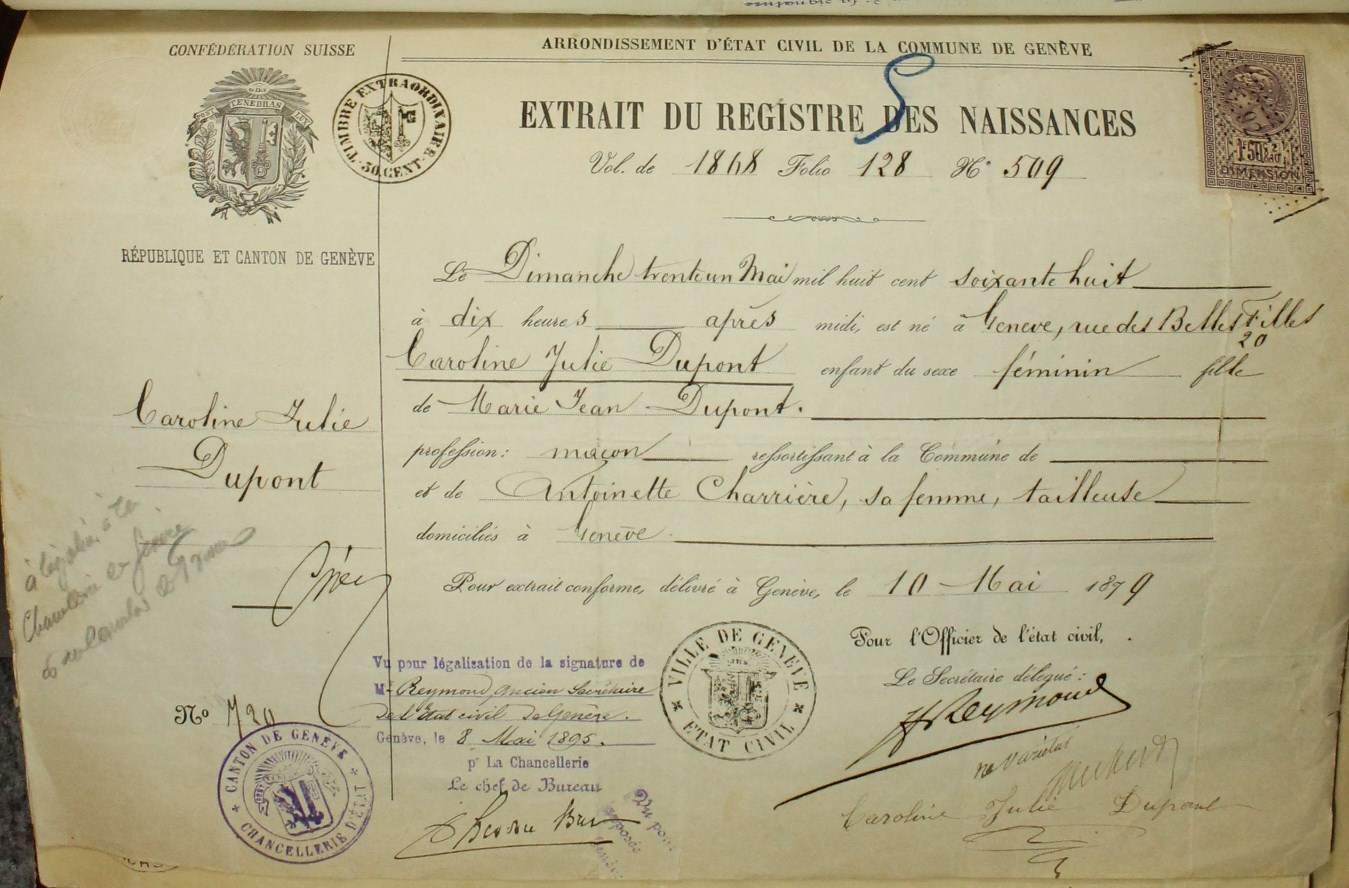 CONFÉDÉRATION SUISSE
POST TENEBRAS LUX
RÉPUBLIQUE ET CANTON DE GENÈVE
TIMBRE EXTRAORDINAIRE
30 CENT.
ARRONDISSEMENT D'ÉTAT CIVIL DE LA COMMUNE DE GENÈVE
EXTRAIT DU REGISTRE DES NAISSANCES
Vol. de 1868 Folio 128 No 509
DIMENSION
Le Dimanche trente un Mai mil huit cent soixante huit
à dix heures après midi, est né à Genève, rue des Belles Filles
20
Caroline Julie Dupont enfant du sexe féminin fille
de Marie Jean Dupont.
profession: maçon ressortissant à la Commune de
et de Antoinette Charrière, sa femme, tailleuse
domiciliés à Genève.
Pour extrait conforme, délivré à Genève, le 10 Mai 1879
Pour l'Officier de l'état civil,
Le Secrétaire délégué:
Reymond
Caroline Julie
Dupont
No 720
Vu pour légalisation de la signature de
M. Reymond ancien Secrétaire
de l'Etat civil de Genève.
Genève, le 8 Mai 1895.
pr La Chancellerie
Le chef de Bureau
CANTON DE GENÈVE
CHANCELLERIE D'ÉTAT
VILLE DE GENÈVE
ETAT CIVIL
Vu pour
ne varietur
Caroline Julie Dupont